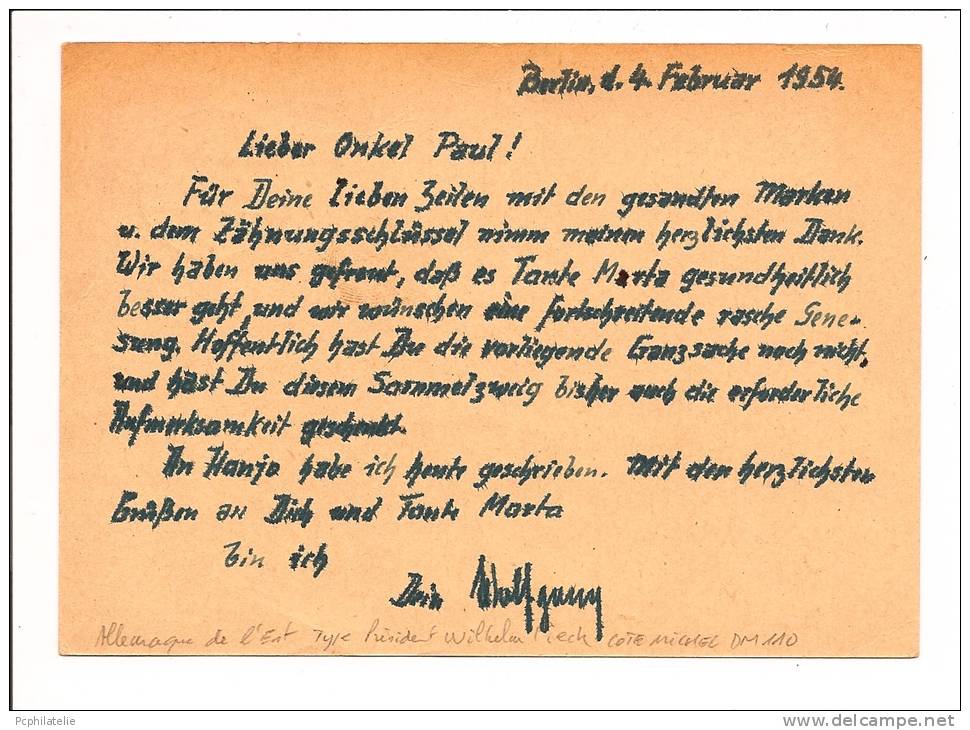 Berlin, d. 4. Februar 1954.
Lieber Onkel Paul!
Für Deine lieben Zeilen mit den gesandten Marken
u. dem Zähnungsschlüssel nimm meinen herzlichsten Dank.
Wir haben uns gefreut, daß es Tante Marta gesundheitlich
besser geht, und wir wünschen eine fortschreitende rasche Gene-
sung. Hoffentlich hast Du die vorliegende Ganzsache noch nicht,
und hast Du diesem Sammelzweig bisher auch die erforderliche
Aufmerksamkeit geschenkt.
An Hanjo habe ich heute geschrieben. Mit den herzlichsten
Grüßen an Dich und Tante Marta
bin ich
Dein Wolfgang
Allemagne de l'Est Type Président Wilhelm Pieck COTE MICHEL DM 110
Pcphilatelie
www.delcampe.net